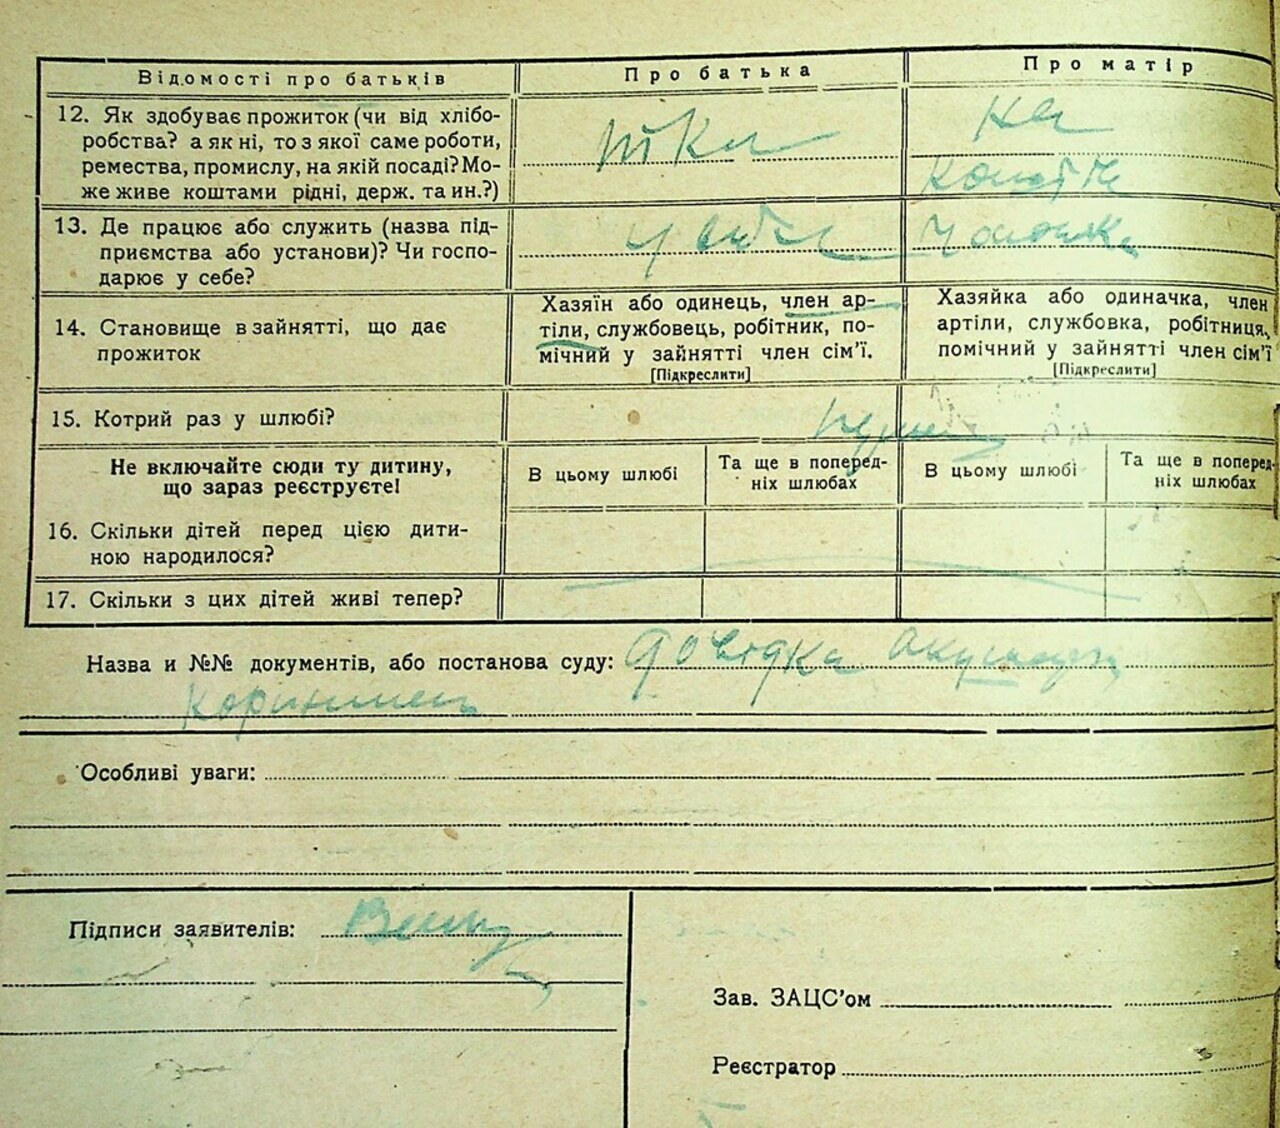 Відомості про батьків
Про батька
Про матір
12. Як здобуває прожиток (чи від хлібо-
робства? а як ні, то з якої саме роботи,
ремества, промислу, на якій посаді? Мо-
же живе коштами рідні, держ. та ин.?)
на
кошти
13. Де працює або служить (назва під-
приємства або установи)? Чи госпо-
дарює у себе?
у себе
чоловіка
14. Становище в зайнятті, що дає
прожиток
Хазяїн або одинець, член ар-
тіли, службовець, робітник, по-
мічний у зайнятті член сім'ї.
[Підкреслити]
Хазяйка або одиначка, член
артіли, службовка, робітниця,
помічний у зайнятті член сім'ї
[Підкреслити]
15. Котрий раз у шлюбі?
Не включайте сюди ту дитину,
що зараз реєструєте!
В цьому шлюбі
Та ще в поперед-
ніх шлюбах
В цьому шлюбі
Та ще в поперед-
ніх шлюбах
16. Скільки дітей перед цією дити-
ною народилося?
17. Скільки з цих дітей живі тепер?
Назва и №№ документів, або постанова суду: довідка
Особливі уваги:
Підписи заявителів:
Зав. ЗАЦС'ом
Реєстратор